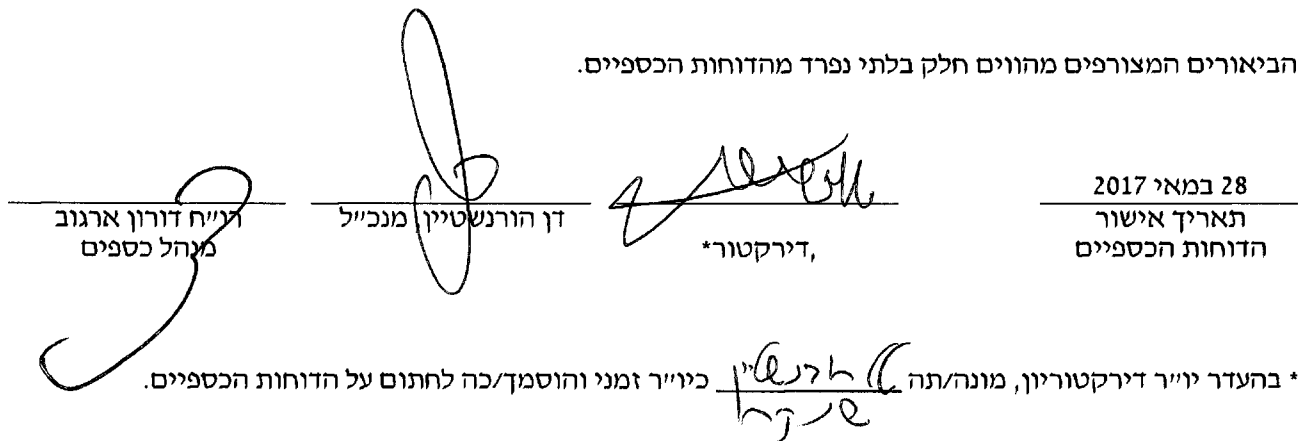 הביאורים המצורפים מהווים חלק בלתי נפרד מהדוחות הכספיים.
28 במאי 2017
תאריך אישור
הדוחות הכספיים
,דירקטור*
דן הורנשטיין, מנכ״ל
רו״ח דורון ארגוב
מנהל כספים
* בהעדר יו״ר דירקטוריון, מונה/תה כיו״ר זמני והוסמך/כה לחתום על הדוחות הכספיים.